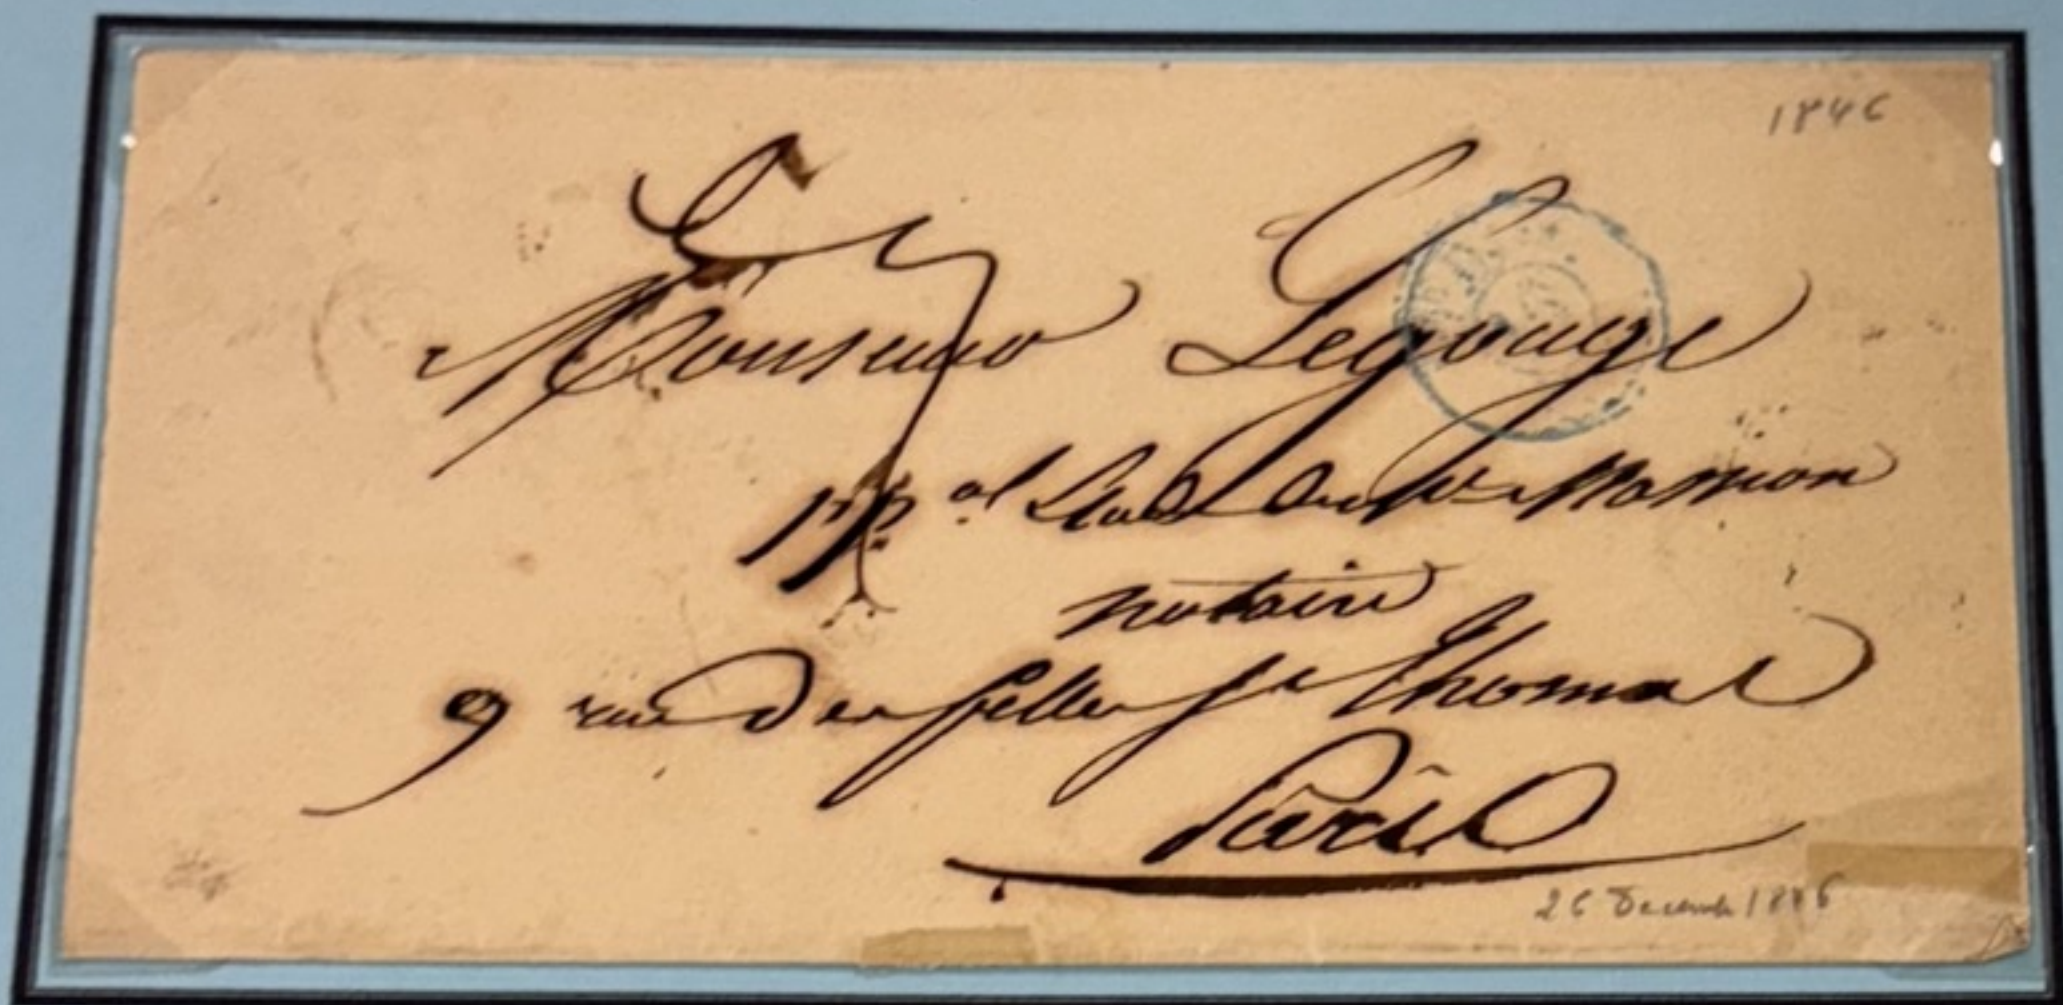 1846
Monsieur Legouge
pp.al Clerc de Me
notaire
9 rue des filles St Thomas
Paris
26 Decemb 1846